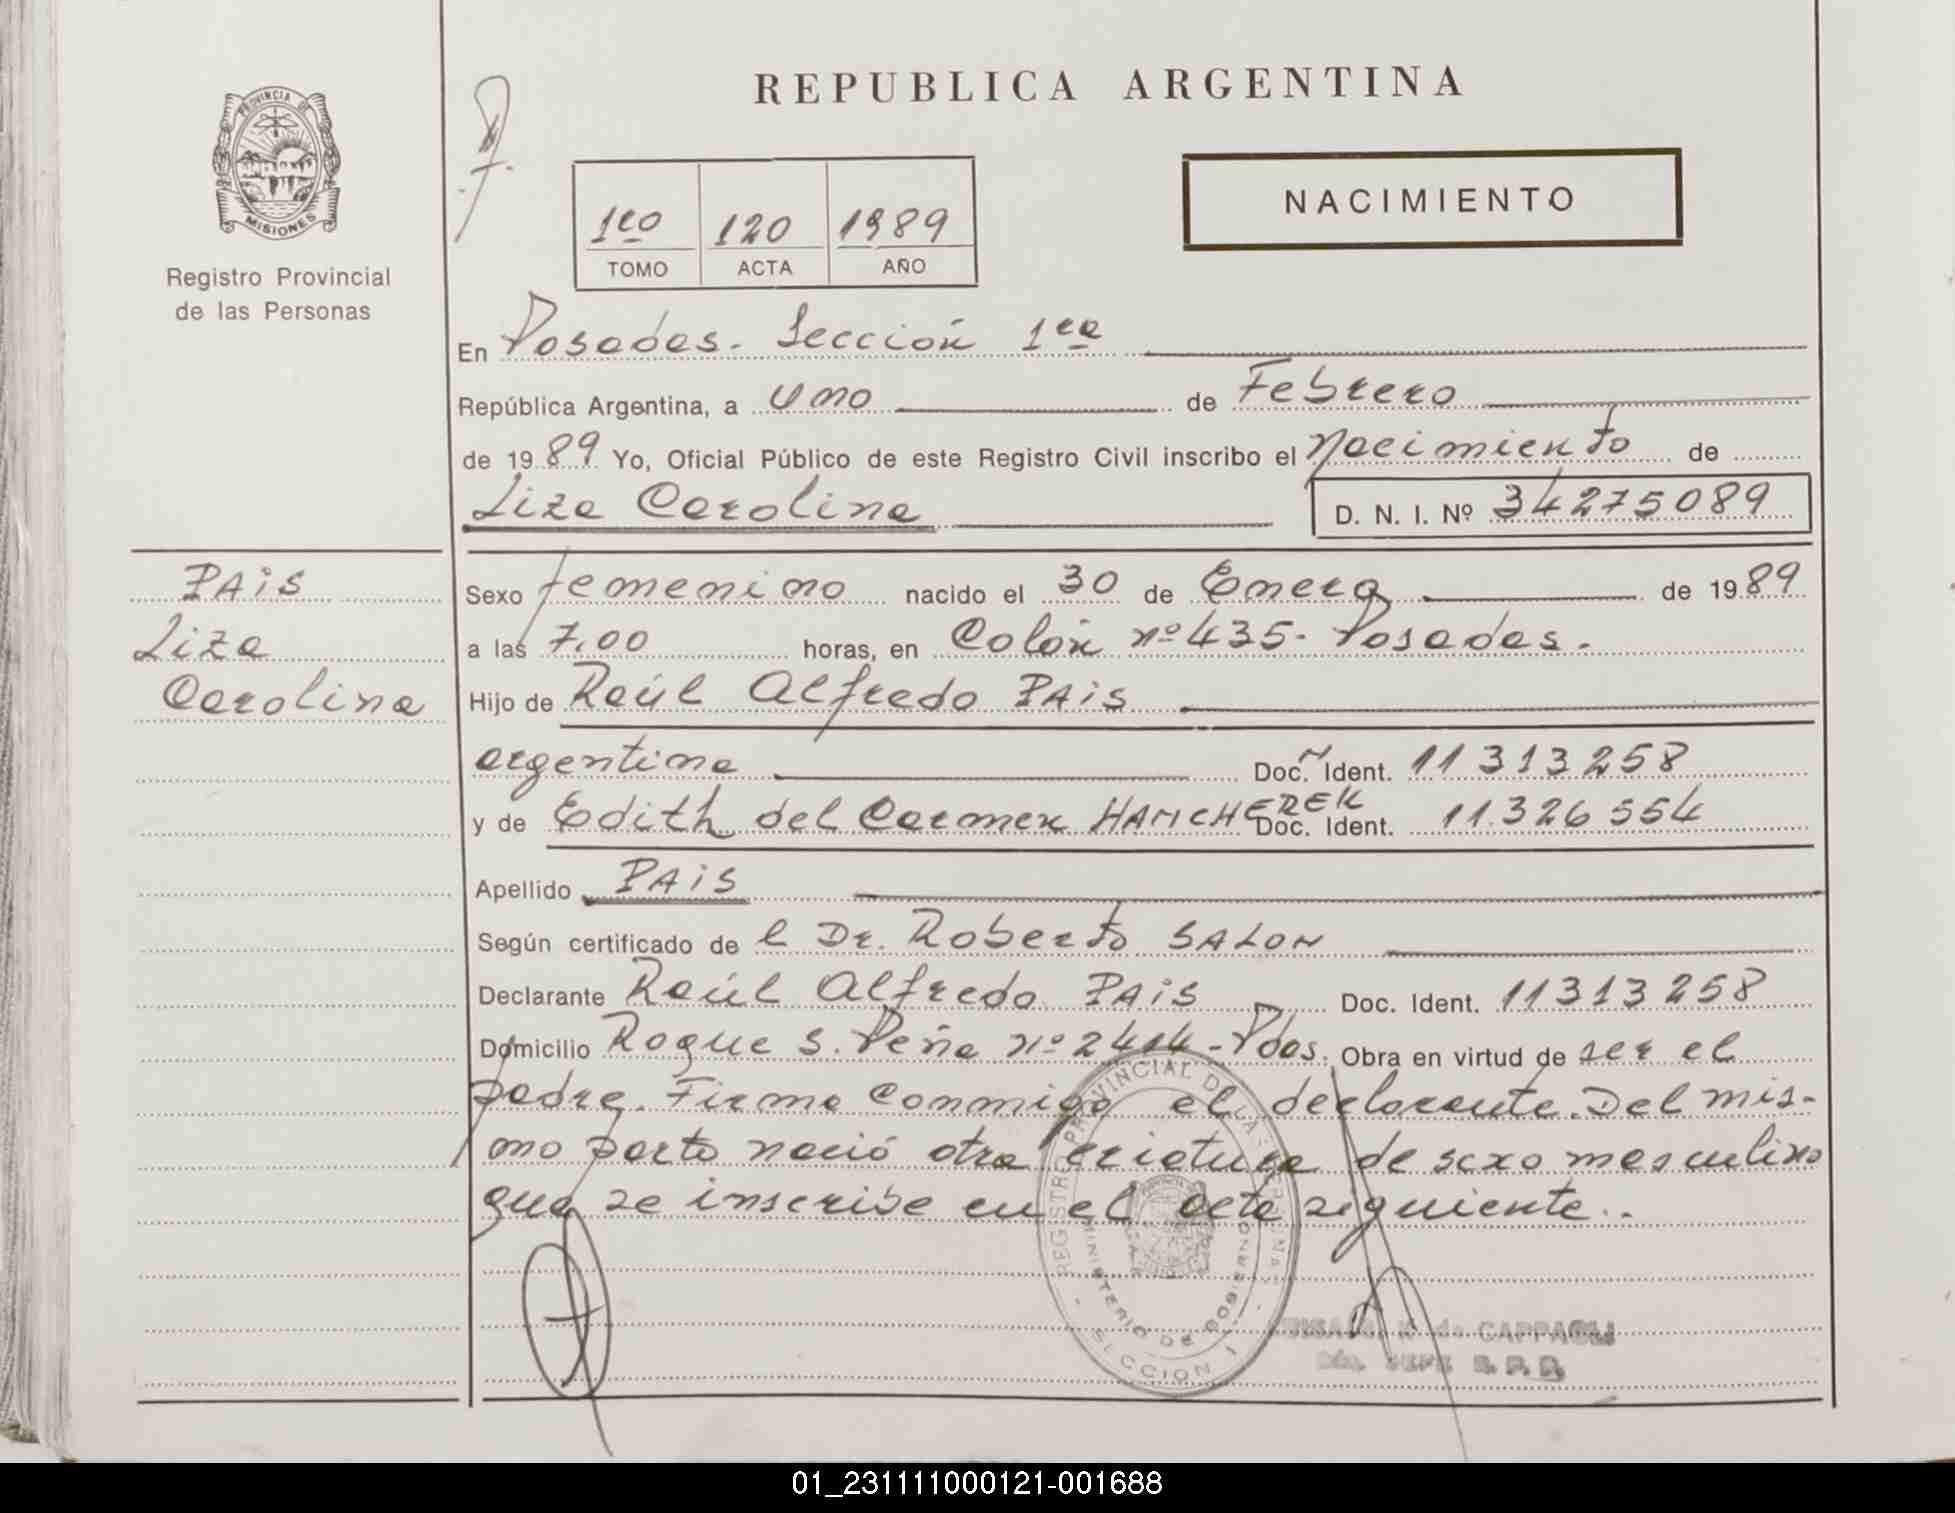 REPUBLICA ARGENTINA
PROVINCIA DE
MISIONES
Registro Provincial
de las Personas
1ro 120 1989
TOMO ACTA AÑO
NACIMIENTO
En Posadas. Sección 1ra
República Argentina, a uno de Febrero
de 1989 Yo, Oficial Público de este Registro Civil inscribo el nacimiento de
Liza Carolina D. N. I. Nº 34275089
PAiS
Liza
Carolina
Sexo femenino nacido el 30 de Enero de 1989
a las 7,00 horas, en Colón nº 435- Posadas.
Hijo de Raúl Alfredo PAiS
argentina Doc. Ident. 11 313 258
y de Edith del Carmen HAMCHEREK Doc. Ident. 11.326 554
Apellido PAiS
Según certificado de l Dr. Roberto SALON
Declarante Raúl Alfredo PAiS Doc. Ident. 11313258
Domicilio Roque S. Peña nº 2414-Pdas. Obra en virtud de ser el
padre. Firma conmigo el declarante. Del mis-
mo parto nació otra criatura de sexo masculino
que se inscribe en el acta siguiente..
REGISTRO PROVINCIAL DE LAS PERSONAS
MINISTERIO DE GOBIERNO
SECCION 1
de CAPPAGLI
01_231111000121-001688